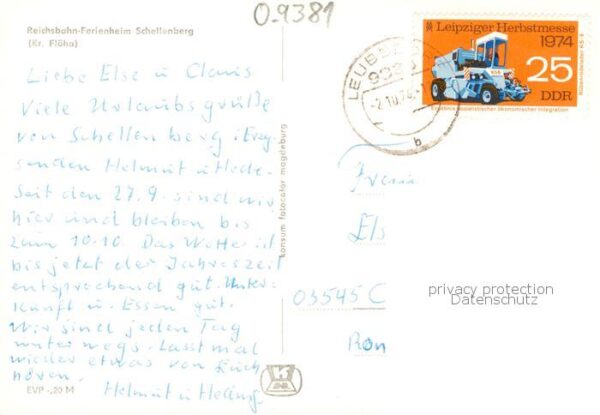 0.9381
Reichsbahn-Ferienheim Schellenberg
(Kr. Flöha)
Liebe Else u Claus
Viele Urlaubsgrüße
von Schellenberg i. Erzg.
senden Helmut u
Seit den 27.9. sind wir
hier und bleiben bis
zum 10.10. Das Wetter ist
bis jetzt der Jahreszeit
entsprechend gut. Unter-
kunft u. Essen gut.
Wir sind jeden Tag
unterwegs. Lasst mal
wieder etwas von Euch
hören.
Helmut u Helling
EVP -,20 M
konsum fotocolor magdeburg
Leipziger Herbstmesse
1974
25
DDR
Rübenrodelader KS 6
Ergebnis sozialistischer ökonomischer Integration
LEUBSD
-2.10.74
b
Els
03545 C
privacy protection
Datenschutz